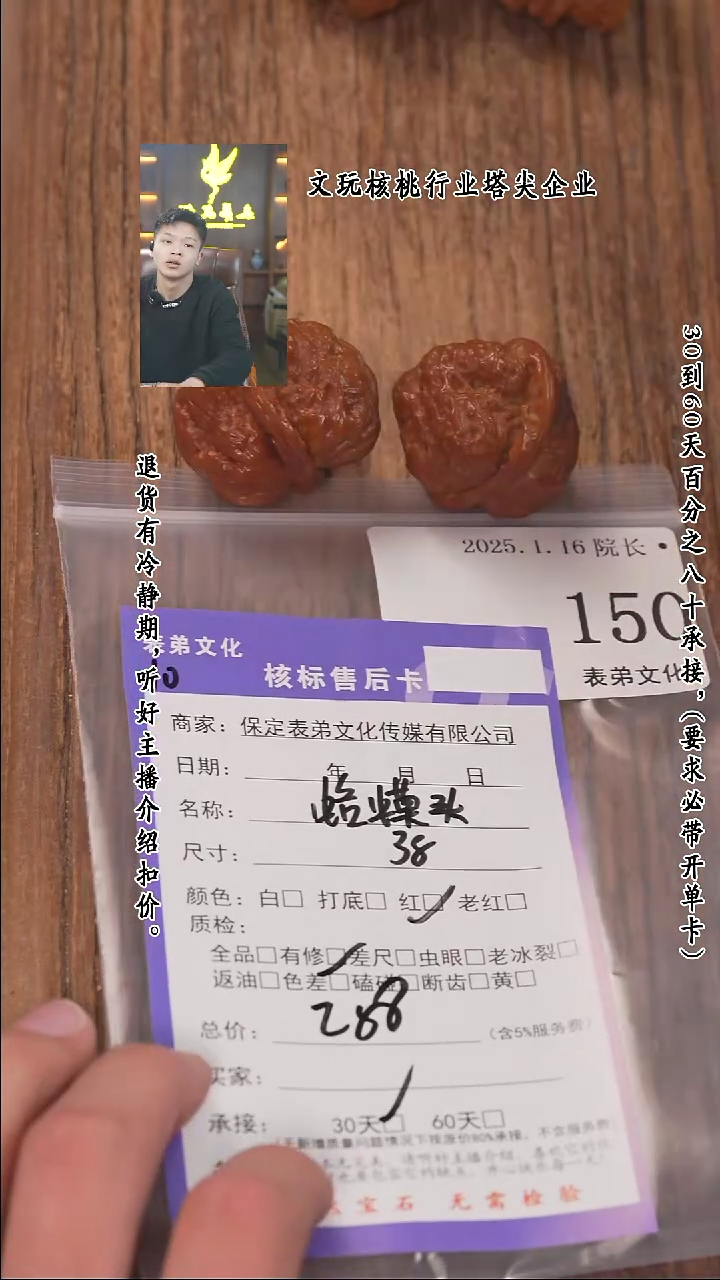 文玩核桃行业塔尖企业
30到60天百分之八十承接，（要求必带开单卡）
退货有冷静期，听好主播介绍扣价。
2025.1.16 院长
150
表弟文化
表弟文化
核标售后卡
商家：保定表弟文化传媒有限公司
日期： 年 月 日
名称： 蛤蟆头
尺寸： 38
颜色：白□ 打底□ 红□ 老红□
质检：
全品□有修□差尺□虫眼□老冰裂□
返油□色差□磕碰□断齿□黄□
总价： 288 （含5%服务费）
买家：
承接： 30天□ 60天□
宝石 无需检验